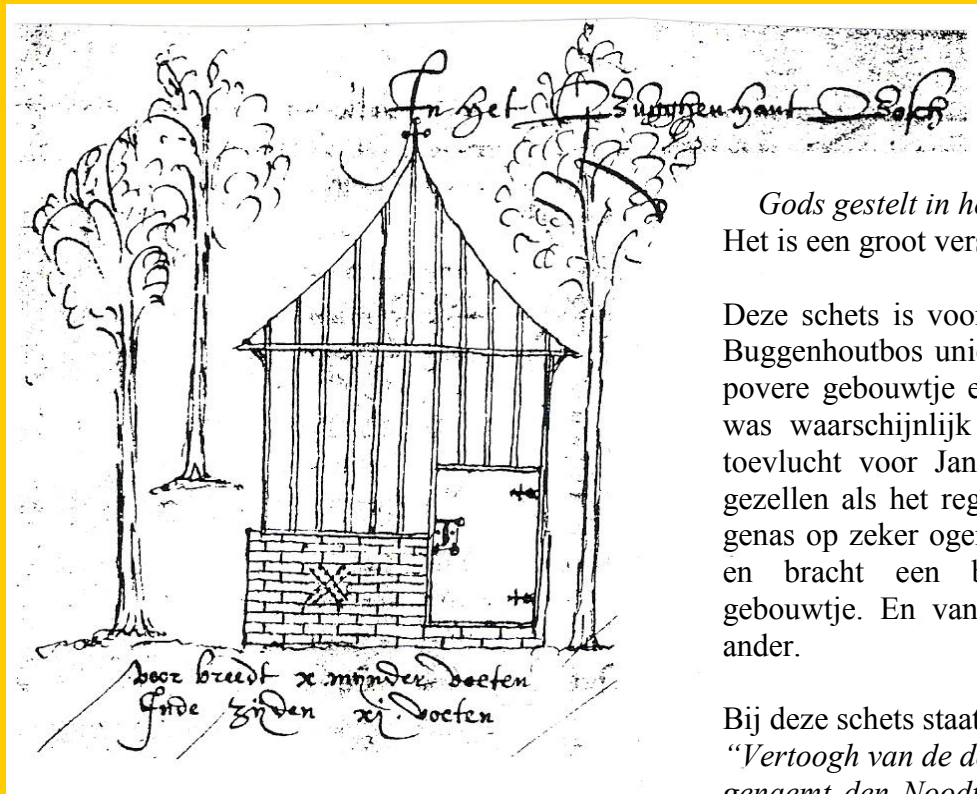 In het Bugghenhaut Bosch
voor breedt x mynder voeten
Inde zijden xj. voeten
Gods gestelt in h
Het is een groot vers
Deze schets is voor
Buggenhoutbos unie
povere gebouwtje e
was waarschijnlijk
toevlucht voor Jan
gezellen als het reg
genas op zeker oge
en bracht een b
gebouwtje. En van
ander.
Bij deze schets staat
“Vertoogh van de d
genaemt den Noodt